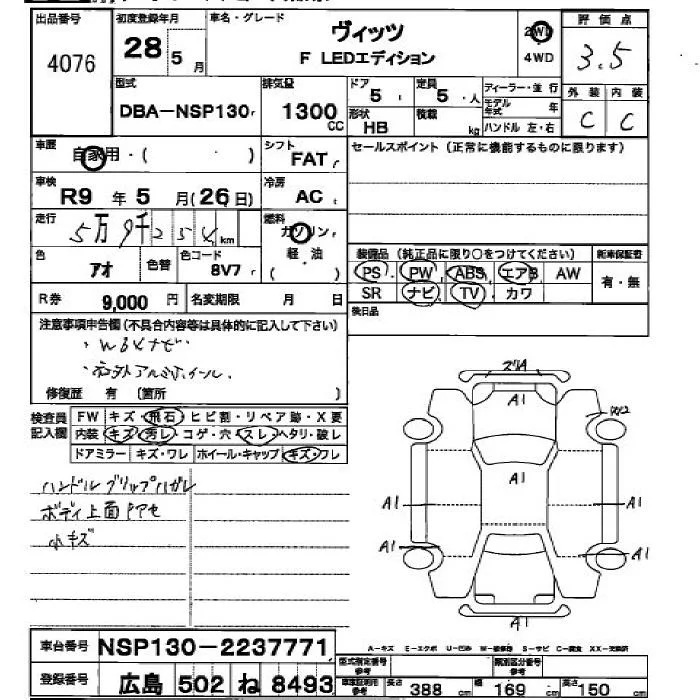 出品番号 4076
初度登録年月 28 5 月
車名・グレード ヴィッツ
F LEDエディション
2WD
4WD
評価点 3.5
型式 DBA-NSP130
排気量 1300 CC
ドア 5
定員 5 人
ディーラー・並行
モデル年式 年
ハンドル 左・右
形状 HB
積載 kg
外装 C
内装 C
車歴 自家用・( )
シフト FAT
セールスポイント (正常に機能するものに限ります)
車検 R9 年 5 月(26日)
冷房 AC
走行 5万9千254 km
燃料 ガソリン
軽・油
( )
色 アオ
色替
色コード 8V7
装備品 (純正品に限り○をつけてください)
新車保証書
PS・PW・ABS・エアB AW
有・無
SR ナビ TV・カワ
後日品
R券 9,000 円
名変期限 月 日
注意事項申告欄 (不具合内容等は具体的に記入して下さい)
・社外アルミホイール.
修復歴 有 〔箇所 〕
検査員記入欄
FW キズ・飛石・ヒビ割・リペア跡・X要
内装 キズ・汚レ・コゲ・穴・スレ・ヘタリ・破レ
ドアミラー キズ・ワレ ホイール・キャップ キズ・ワレ
ハンドルグリップハガレ
ボディ上面 色アセ
小キズ
A1
W2
A1
A1 A1
A1 A1
A1
車台番号 NSP130-2237771
A-キズ E-エクボ U-凹み W-補修跡 S-サビ C-腐食 XX-交換済
型式指定番号 参考
類別区分番号 参考
登録番号 広島 502 ね 8493
車庫証明用 参考 長さ 388 cm 幅 169 cm 高さ 150 cm